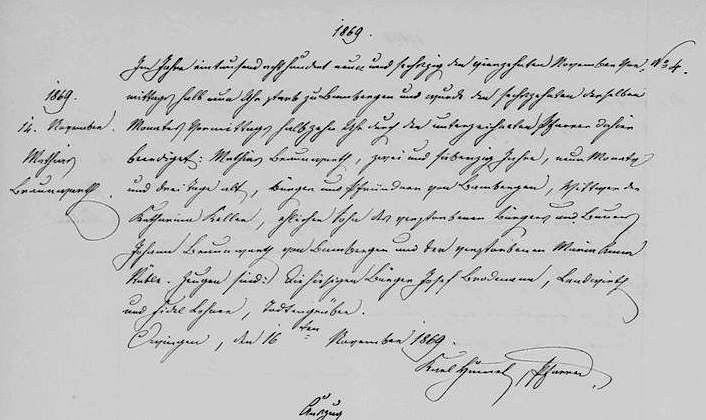 1869.
Im Jahre eintausend achthundert neun und sechzig den vierzehnten November Vor- No 4.
1869.
mittags halb neun Uhr starb zu Bambergen und wurde den sechzehnten desselben
14. November.
Monats Vormittags halb zehn Uhr durch den unterzeichneten Pfarrer dahier
Mathias
beerdiget: Mathias Braunwarth, zwei und siebenzig Jahre, neun Monate
Braunwarth.
und drei Tage alt, Bürger und Pfründner von Bambergen, Wittwer der
Katharina Keller, ehlicher Sohn des verstorbenen Bürgers und Bauers
Johann Braunwarth von Bambergen und der verstorbenen Maria Anna
Zeugen sind: die hiesigen Bürger Josef Brodmann, Landwirth
und Fidel Lohrer, Todtengräber.
Owingen, den 16ten November 1869.
Karl Pfarrer.
Auszug